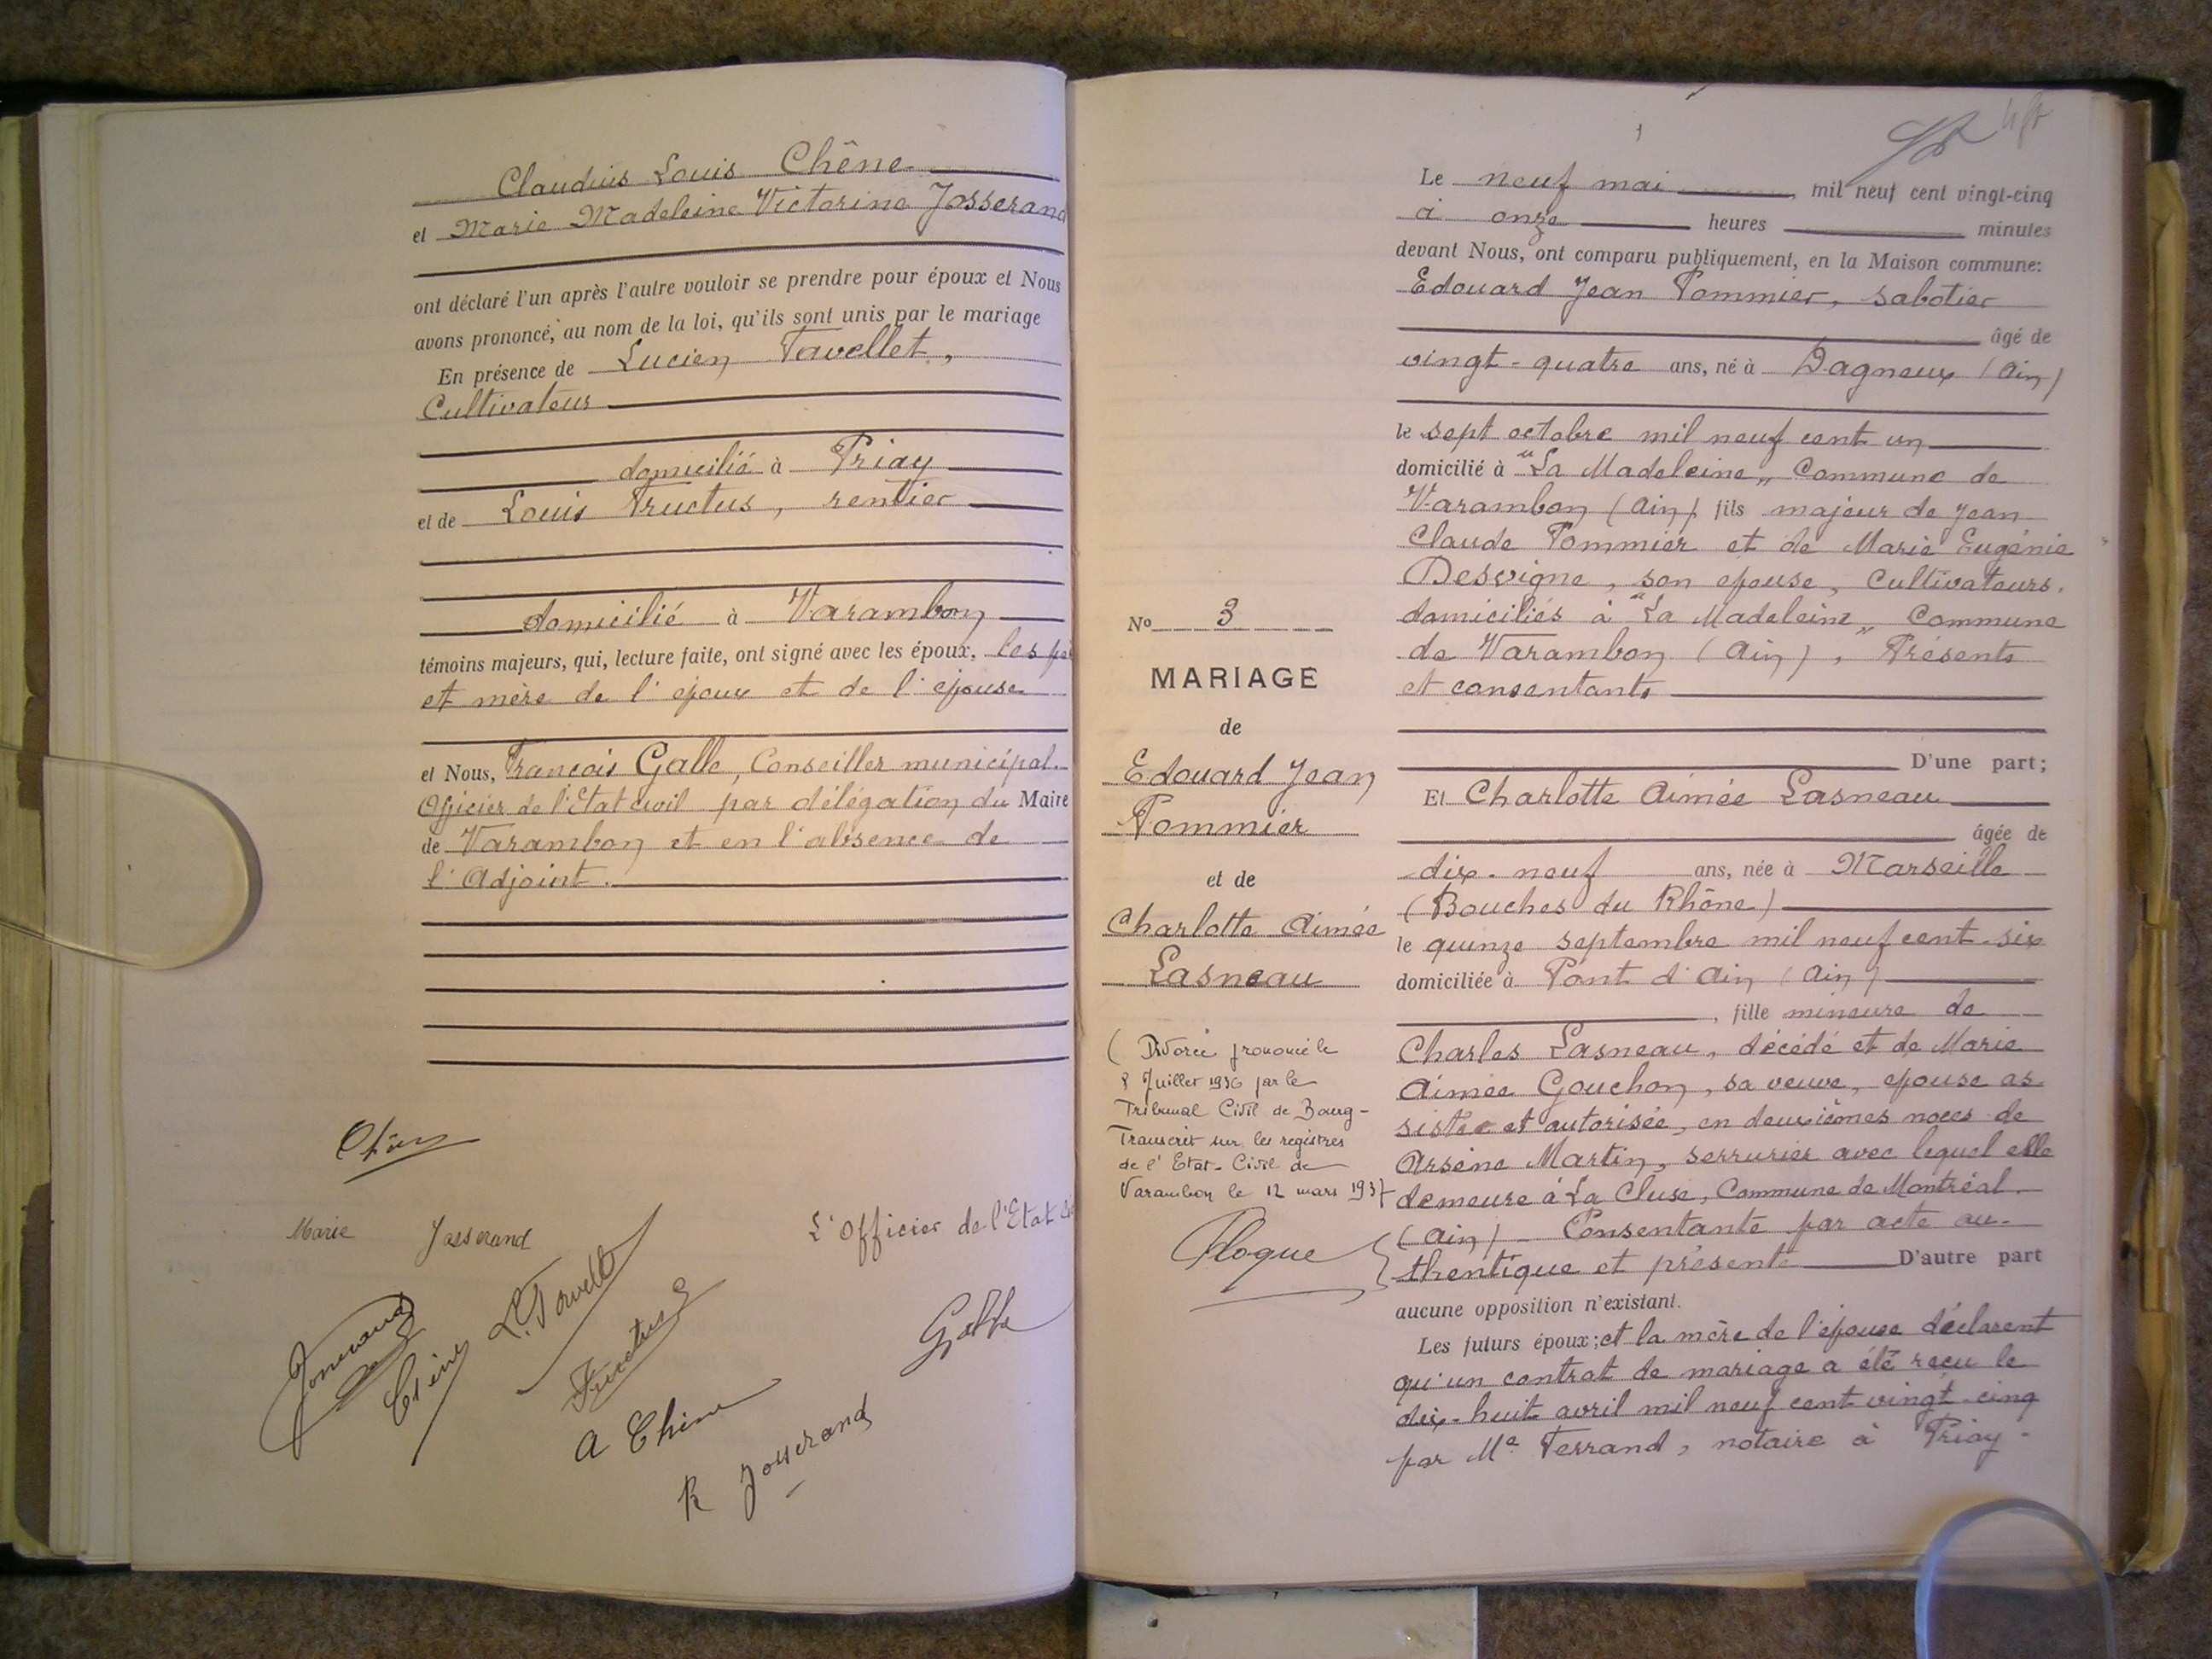 Claudius Louis Chêne
et Marie Madeleine Victorine Josserand
ont déclaré l'un après l'autre vouloir se prendre pour époux et Nous
avons prononcé, au nom de la loi, qu'ils sont unis par le mariage
En présence de Lucien Tavellet,
Cultivateur
domicilié à Priay
et de Louis Fructus, rentier
domicilié à Varambon
témoins majeurs, qui, lecture faite, ont signé avec les époux, les
et mère de l'époux et de l'épouse
et Nous, François Galle, Conseiller municipal.
Officier de l'Etat civil par délégation du Maire
de Varambon et en l'absence de
l'Adjoint.
Chêne
Marie Josserand
L'Officier de l'Etat
Josserand
Chêne
L. Tavellet
Fructus
Galle
A Chêne
R Josserand
Le neuf mai, mil neuf cent vingt-cinq
à onze heures minutes
devant Nous, ont comparu publiquement, en la Maison commune:
Edouard Jean Pommier, sabotier
âgé de
vingt-quatre ans, né à Dagneux (Ain)
le sept octobre mil neuf cent un
domicilié à "La Madeleine" Commune de
Varambon (Ain) fils majeur de Jean
Claude Pommier et de Marie Eugénie
Desvigne, son epouse, Cultivateurs.
domiciliés à "La Madeleine" Commune
de Varambon (Ain), Présents
et consentants
D'une part;
Et Charlotte Aimée Lasneau
âgée de
dix-neuf ans, née à Marseille
(Bouches du Rhône)
le quinze septembre mil neuf cent-six
domiciliée à Pont d'Ain (Ain)
, fille mineure de
Charles Lasneau, décédé et de Marie
Aimée Gouchon, sa veuve, epouse as-
sistée et autorisée, en deuxièmes noces de
Arsène Martin, serrurier avec lequel elle
demeure à La Cluse, Commune de Montréal.
(Ain) - Consentante par acte au-
thentique et présente D'autre part
aucune opposition n'existant.
Les futurs époux; et la mère de l'épouse déclarent
qu'un contrat de mariage a été reçu le
dix-huit avril mil neuf cent vingt-cinq
par Me Ferrand, notaire à Priay-
No 3
MARIAGE
de
Edouard Jean
Pommier
et de
Charlotte Aimée
Lasneau
( Divorce prononcé le
8 Juillet 1936 par le
Tribunal Civil de Bourg-
Transcrit sur les registres
de l'Etat-Civil de
Varambon le 12 mars 1937
Ploque